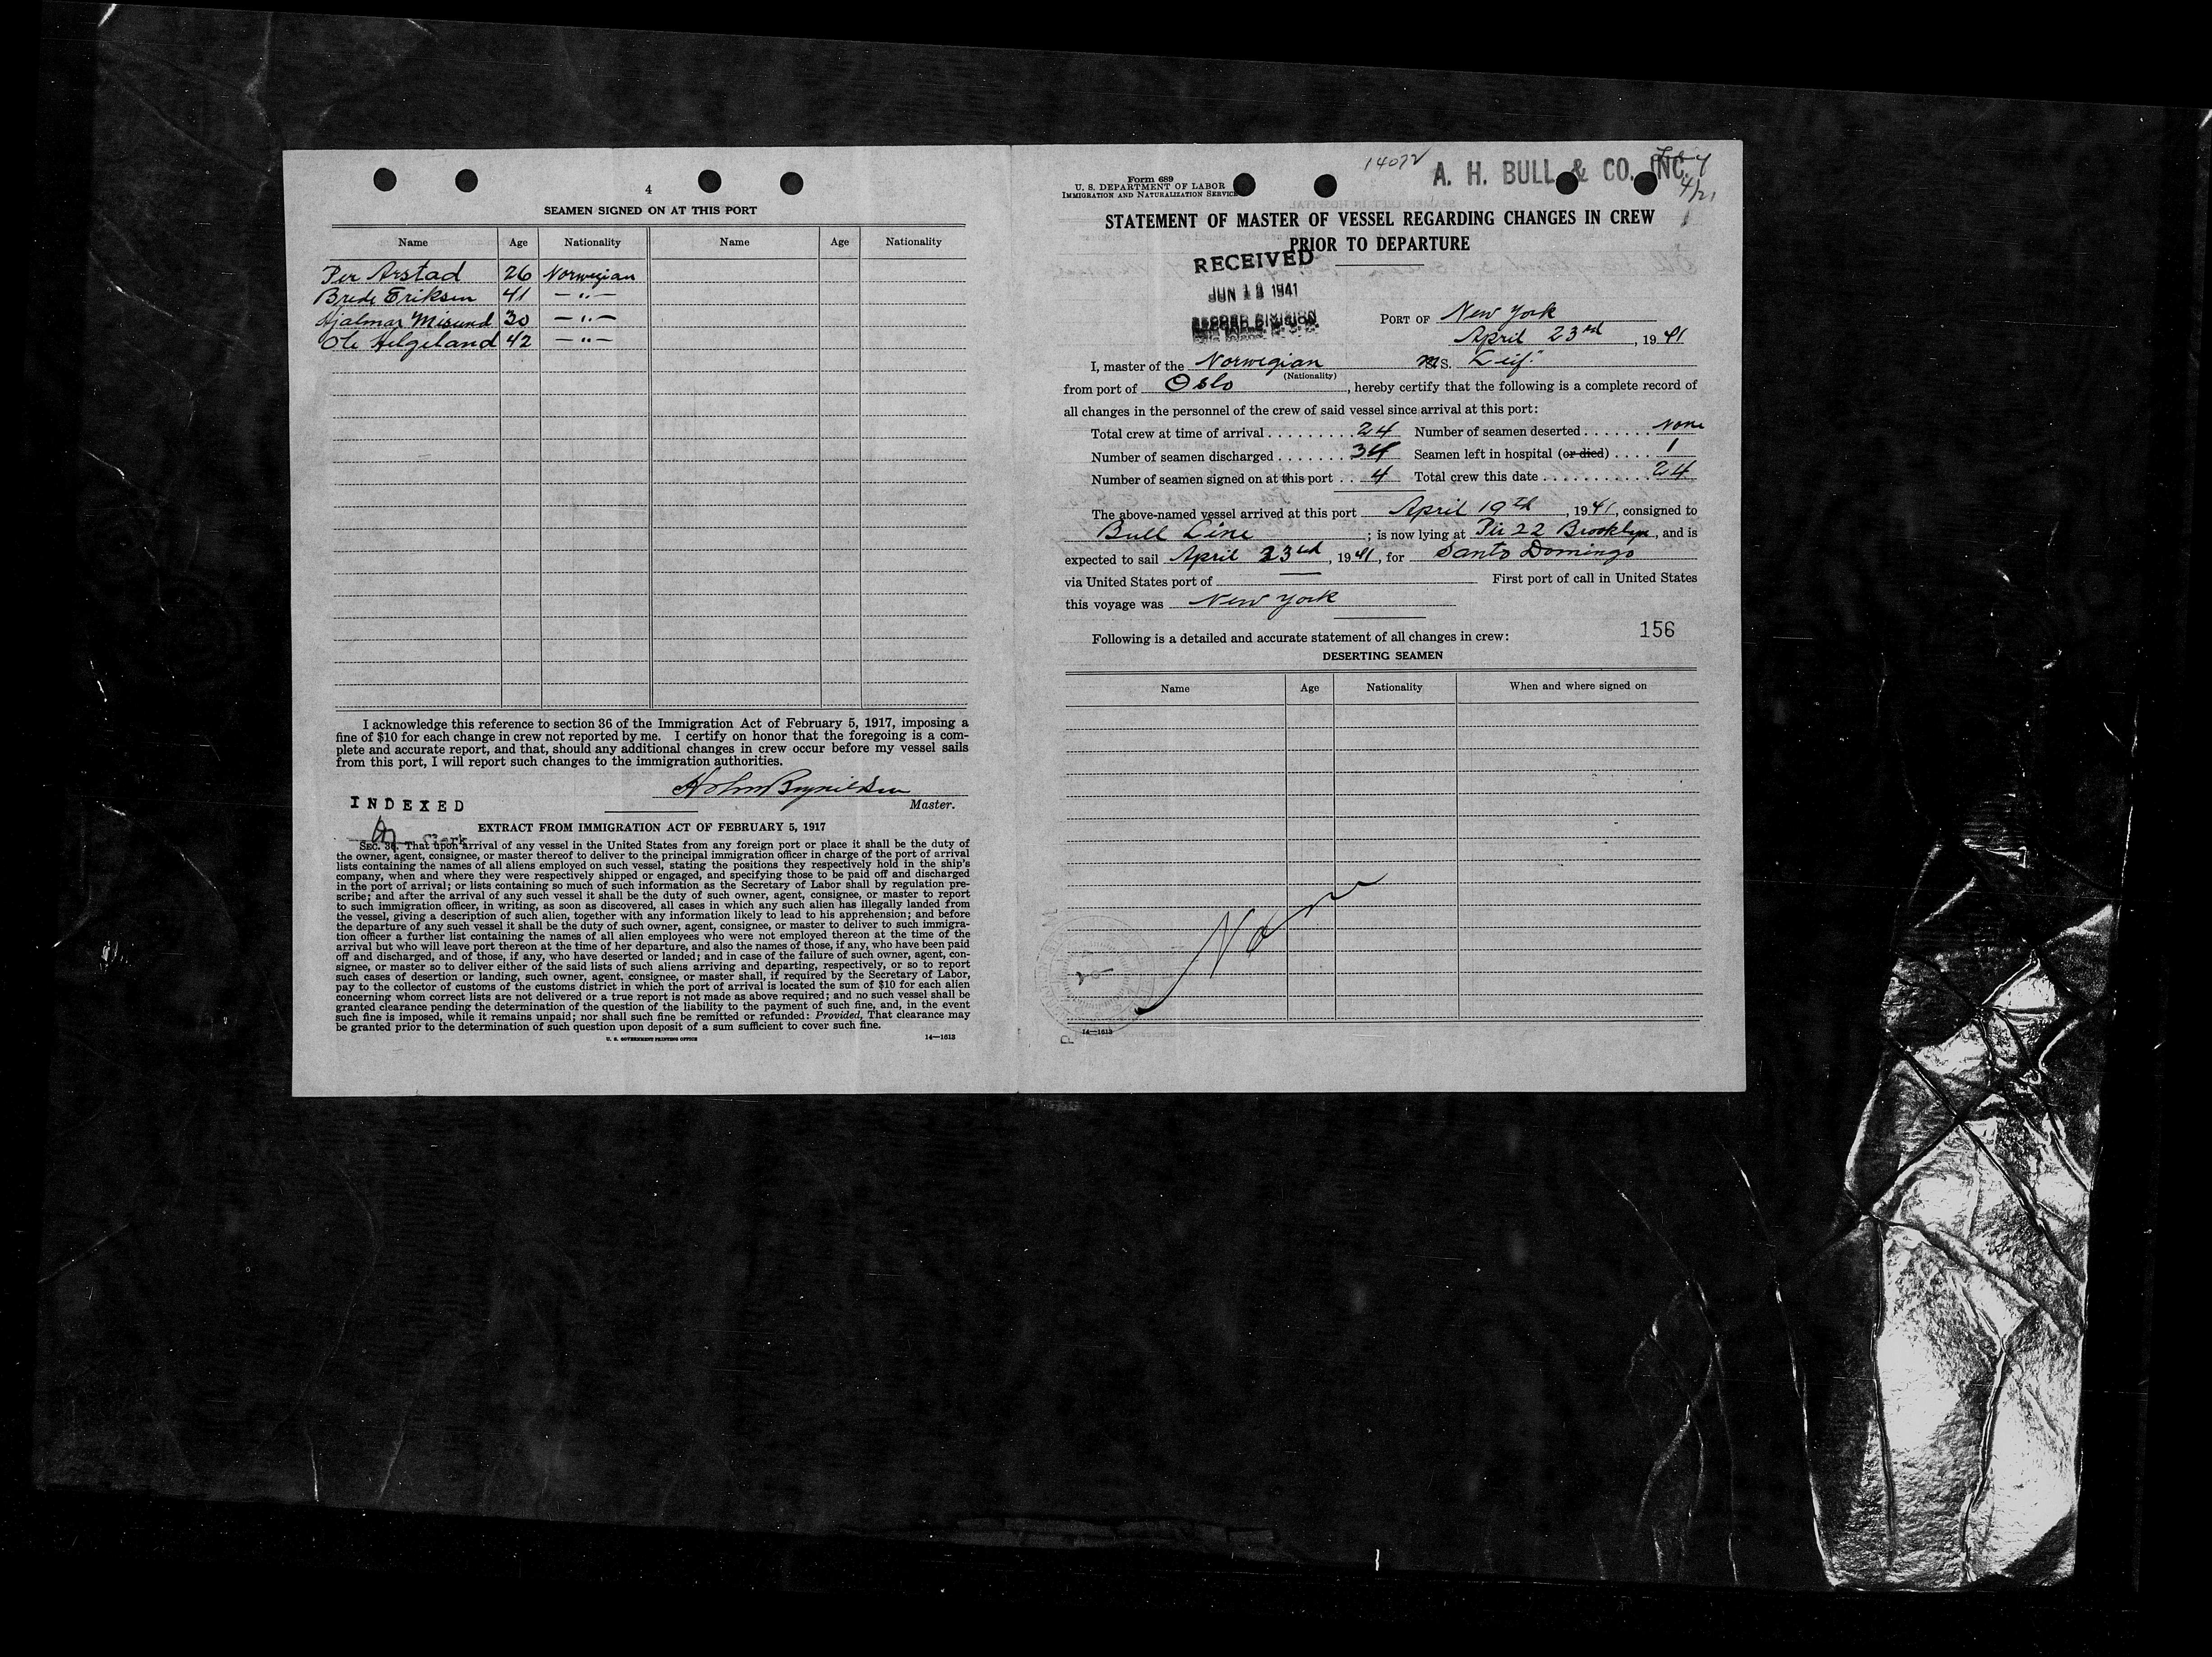 4
SEAMEN SIGNED ON AT THIS PORT
Name Age Nationality Name Age Nationality
Per Arstad 26 Norwegian
Brede Eriksen 41 — " —
Hjalmar Misund 30 — " —
Ole Helgeland 42 — " —
I acknowledge this reference to section 36 of the Immigration Act of February 5, 1917, imposing a
fine of $10 for each change in crew not reported by me. I certify on honor that the foregoing is a com-
plete and accurate report, and that, should any additional changes in crew occur before my vessel sails
from this port, I will report such changes to the immigration authorities.
Master.
INDEXED
Clerk
EXTRACT FROM IMMIGRATION ACT OF FEBRUARY 5, 1917
SEC. 36. That upon arrival of any vessel in the United States from any foreign port or place it shall be the duty of
the owner, agent, consignee, or master thereof to deliver to the principal immigration officer in charge of the port of arrival
lists containing the names of all aliens employed on such vessel, stating the positions they respectively hold in the ship's
company, when and where they were respectively shipped or engaged, and specifying those to be paid off and discharged
in the port of arrival; or lists containing so much of such information as the Secretary of Labor shall by regulation pre-
scribe; and after the arrival of any such vessel it shall be the duty of such owner, agent, consignee, or master to report
to such immigration officer, in writing, as soon as discovered, all cases in which any such alien has illegally landed from
the vessel, giving a description of such alien, together with any information likely to lead to his apprehension; and before
the departure of any such vessel it shall be the duty of such owner, agent, consignee, or master to deliver to such immigra-
tion officer a further list containing the names of all alien employees who were not employed thereon at the time of the
arrival but who will leave port thereon at the time of her departure, and also the names of those, if any, who have been paid
off and discharged, and of those, if any, who have deserted or landed; and in case of the failure of such owner, agent, con-
signee, or master so to deliver either of the said lists of such aliens arriving and departing, respectively, or so to report
such cases of desertion or landing, such owner, agent, consignee, or master shall, if required by the Secretary of Labor,
pay to the collector of customs of the customs district in which the port of arrival is located the sum of $10 for each alien
concerning whom correct lists are not delivered or a true report is not made as above required; and no such vessel shall be
granted clearance pending the determination of the question of the liability to the payment of such fine, and, in the event
such fine is imposed, while it remains unpaid; nor shall such fine be remitted or refunded: Provided, That clearance may
be granted prior to the determination of such question upon deposit of a sum sufficient to cover such fine.
U. S. GOVERNMENT PRINTING OFFICE 14—1613
14072
A. H. BULL & CO. INC.
4/21
Form 689
U. S. DEPARTMENT OF LABOR
IMMIGRATION AND NATURALIZATION SERVICE
STATEMENT OF MASTER OF VESSEL REGARDING CHANGES IN CREW
PRIOR TO DEPARTURE
RECEIVED
JUN 1941
PORT OF New York
April 23rd, 1941
I, master of the Norwegian MS. Leif."
(Nationality)
from port of Oslo, hereby certify that the following is a complete record of
all changes in the personnel of the crew of said vessel since arrival at this port:
Total crew at time of arrival . . . . . . . . . 24 Number of seamen deserted . . . . . . . None
Number of seamen discharged . . . . . . . 34 Seamen left in hospital (or died) . . . . 1
Number of seamen signed on at this port . . 4 Total crew this date . . . . . . . . . . . 24
The above-named vessel arrived at this port April 19th, 1941, consigned to
Bull Line; is now lying at Pir 22 Brooklyn, and is
expected to sail April 23rd, 1941, for Santo Domingo
via United States port of — First port of call in United States
this voyage was New York
Following is a detailed and accurate statement of all changes in crew: 156
DESERTING SEAMEN
Name Age Nationality When and where signed on
14—1613